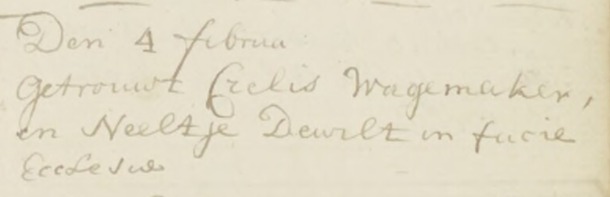 Den 4 februa
Getrouwt Crelis Wagemaker,
en Neeltje Dewilt in facie
Ecclesiae